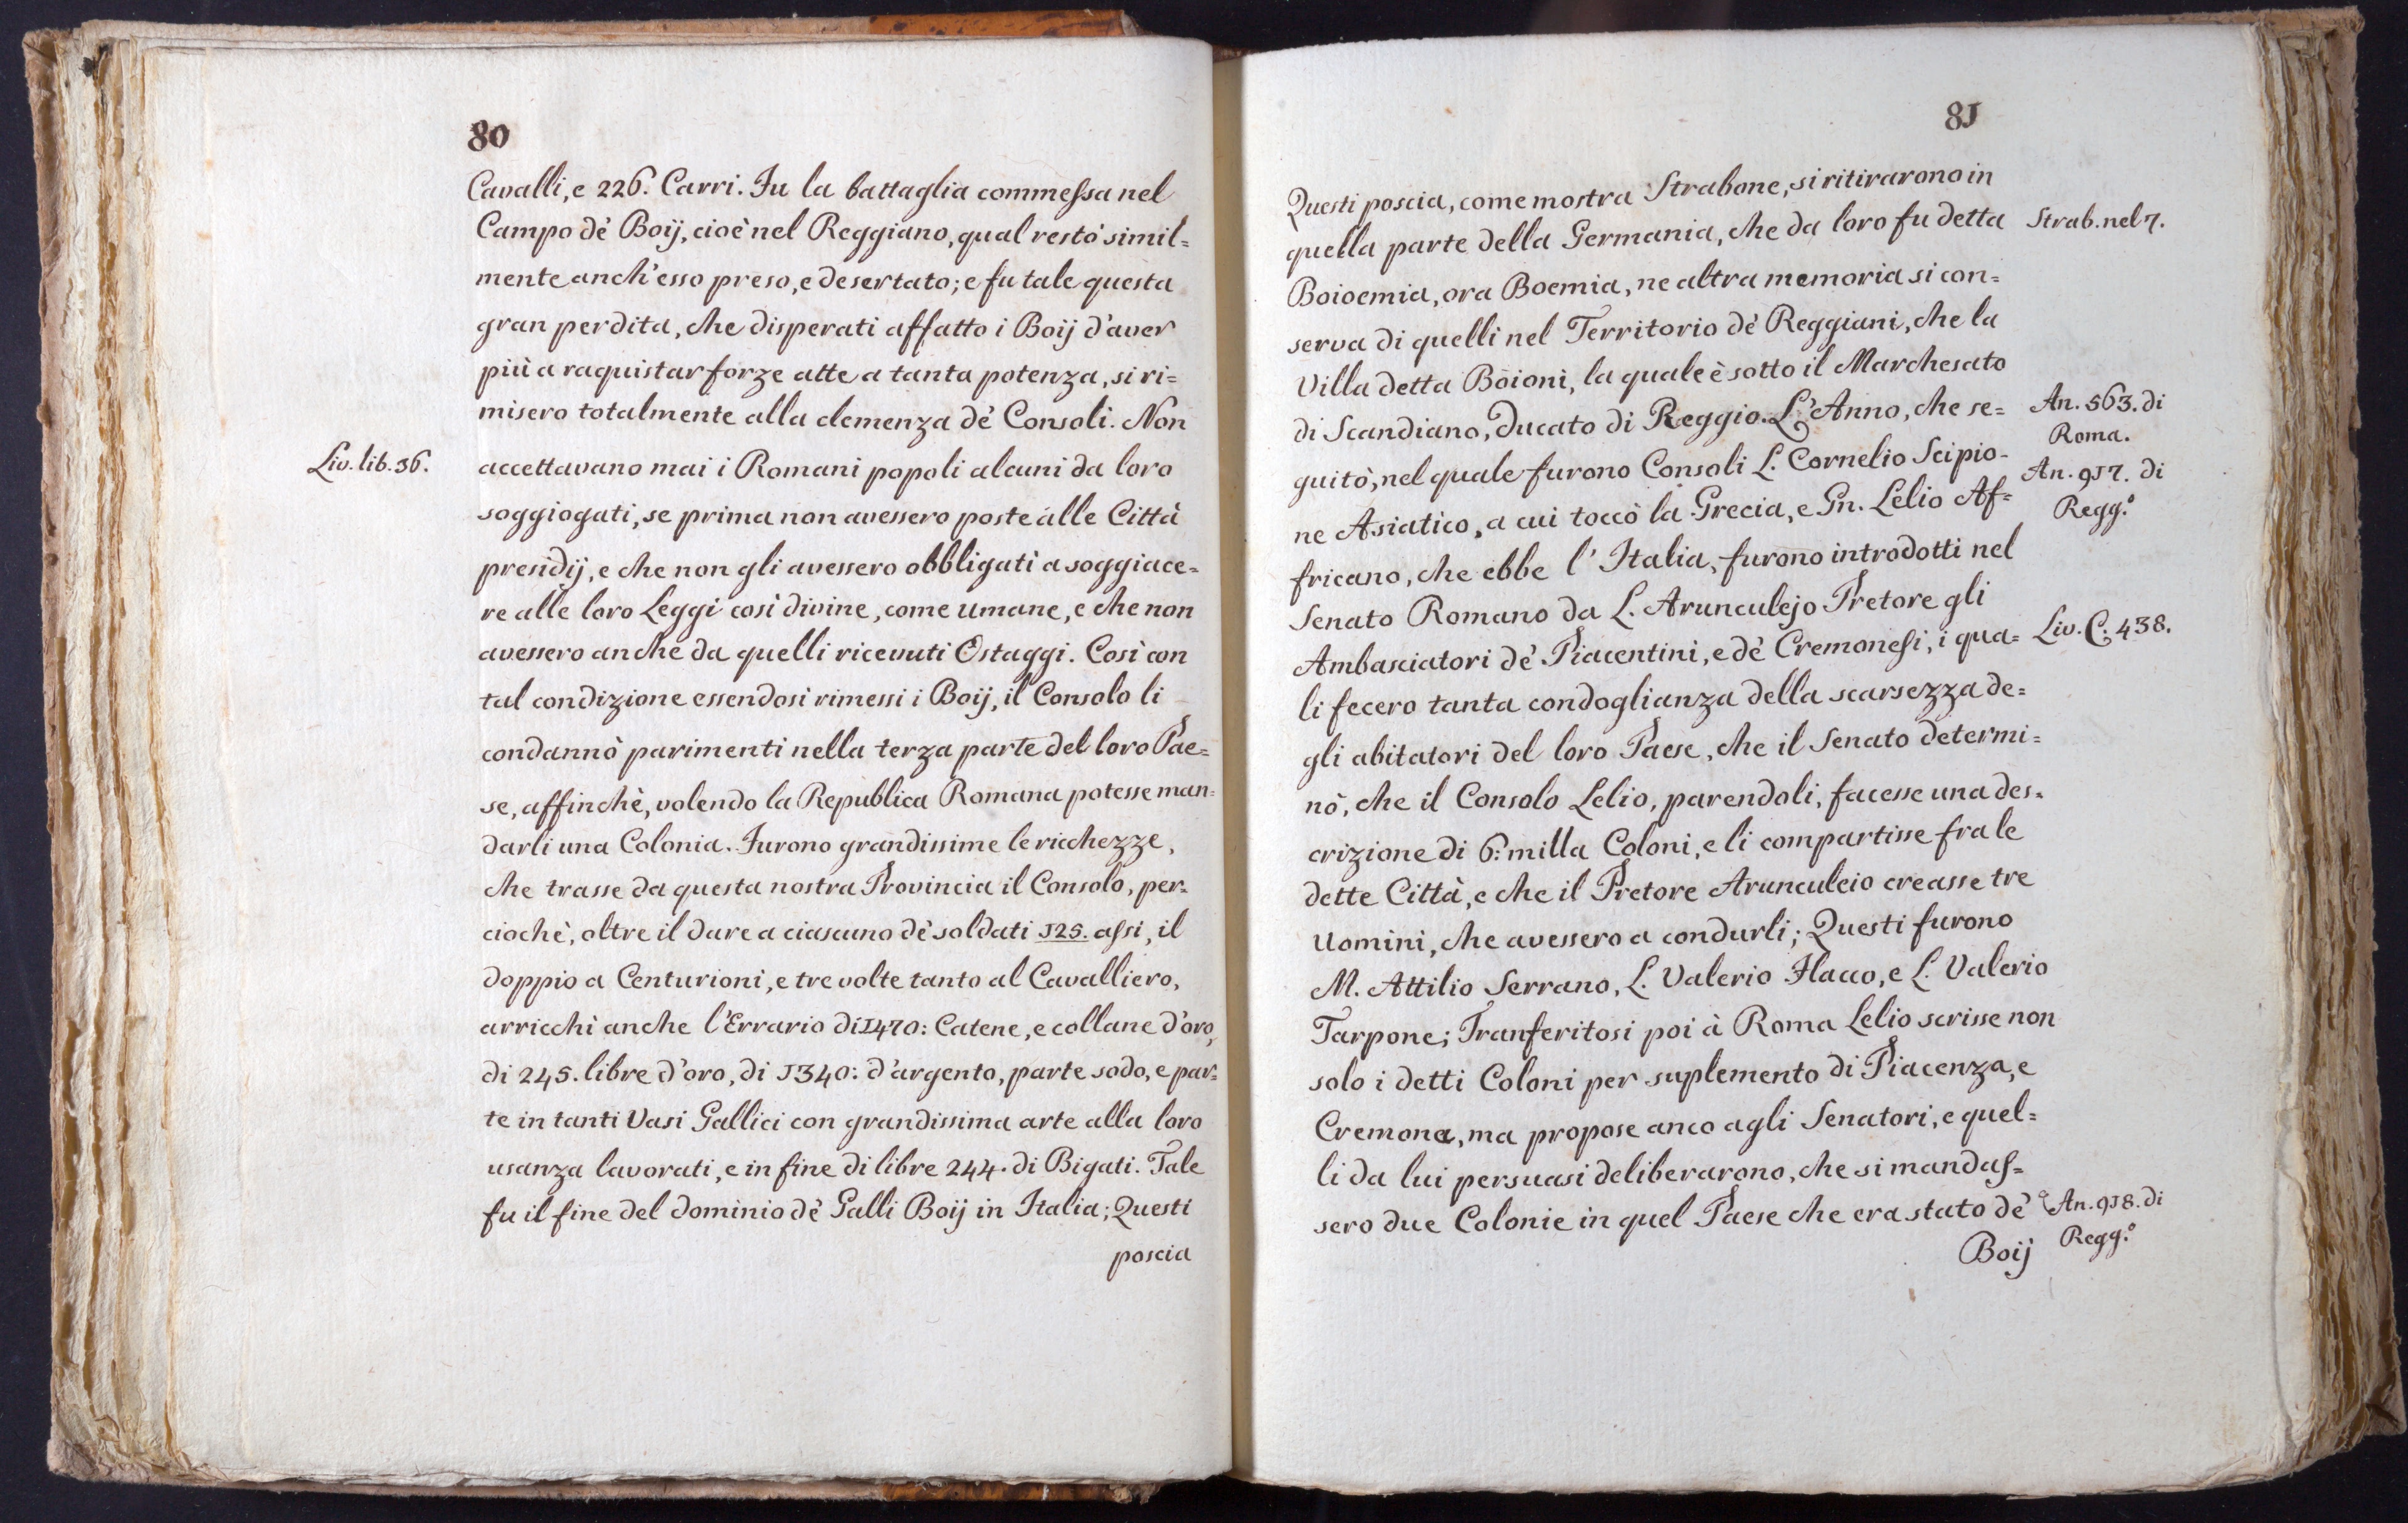 80
Cavalli, e 226. Carri. Fu la battaglia commessa nel
Campo dè Boij, cioè nel Reggiano, qual restò simil=
mente anch'esso preso, e desertato; e fu tale questa
gran perdita, che disperati affatto i Boij d'aver
più a raquistar forze atte a tanta potenza, si ri=
misero totalmente alla clemenza dè Consoli. Non
Liv. lib. 36.
accettavano mai i Romani popoli alcuni da loro
soggiogati, se prima non avessero poste alle Città
presidij, e che non gli avessero obbligati a soggiace=
re alle loro Leggi così divine, come umane, e che non
avessero anche da quelli ricevuti Ostaggi. Così con
tal condizione essendosi rimessi i Boij, il Consolo li
condannò parimenti nella terza parte del loro Pae=
se, affinchè, volendo la Republica Romana potesse man=
darli una Colonia. Furono grandissime le ricchezze,
che trasse da questa nostra Provincia il Consolo, per=
ciochè, oltre il dare a ciascuno dè soldati 125. assi, il
doppio a Centurioni, e tre volte tanto al Cavalliero,
arricchì anche l'Errario di 1470: Catene, e collane d'oro,
di 245. libre d'oro, di 1340: d'argento, parte sodo, e par=
te in tanti Vasi Gallici con grandissima arte alla loro
usanza lavorati, e in fine di libre 244. di Bigati. Tale
fu il fine del dominio dè Galli Boij in Italia; Questi
poscia
81
Questi poscia, come mostra Strabone, si ritirarono in
quella parte della Germania, che da loro fu detta
Strab. nel 7.
Boioemia, ora Boemia, ne altra memoria si con=
serva di quelli nel Territorio dè Reggiani, che la
Villa detta Boioni, la quale è sotto il Marchesato
di Scandiano, Ducato di Reggio. L'Anno, che se=
An. 563. di
Roma.
guitò, nel quale furono Consoli L. Cornelio Scipio-
An. 917. di
Regg.º
ne Asiatico, a cui toccò la Grecia, e Gn. Lelio Af=
fricano, che ebbe l'Italia, furono introdotti nel
Senato Romano da L. Arunculejo Pretore gli
Ambasciatori dè Piacentini, e dè Cremonesi, i qua=
Liv. C. 438.
li fecero tanta condoglianza della scarsezza de=
gli abitatori del loro Paese, che il Senato determi=
nò, che il Consolo Lelio, parendoli, facesse una des=
crizione di 6: milla Coloni, e li compartisse fra le
dette Città, e che il Pretore Arunculeio creasse tre
Uomini, che avessero a condurli; Questi furono
M. Attilio Serrano, L. Valerio Flacco, e L. Valerio
Tarpone; Tranferitosi poi à Roma Lelio scrisse non
solo i detti Coloni per suplemento di Piacenza, e
Cremona, ma propose anco agli Senatori, e quel=
li da lui persuasi deliberarono, che si mandas=
sero due Colonie in quel Paese che era stato dè
An. 918. di
Regg.º
Boij